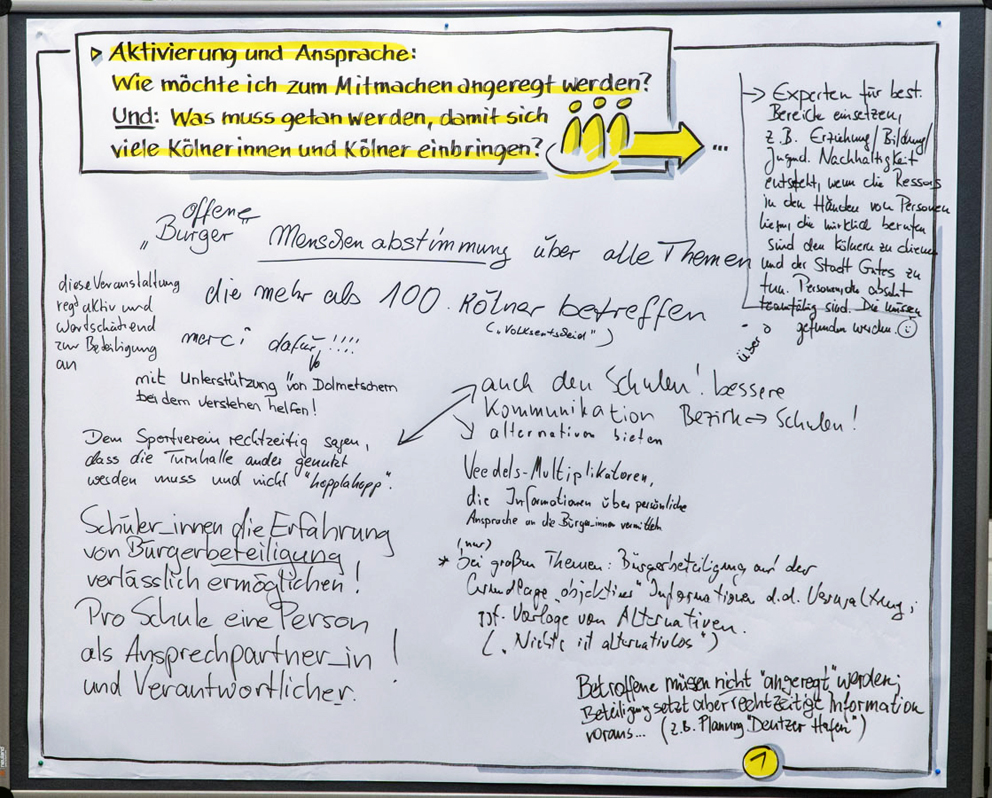 ▷ Aktivierung und Ansprache:
Wie möchte ich zum Mitmachen angeregt werden?
Und: Was muss getan werden, damit sich
viele Kölnerinnen und Kölner einbringen?
...
→ Experten für best.
Bereiche einsetzen,
z.B. Erziehung/Bildung/
Jugend. Nachhaltigkeit
entsteht, wenn die Ressorts
in den Händen von Personen
liegen, die wirklich berufen
sind den Kölnern zu dienen
und der Stadt Gutes zu
tun. Personen, die absolut
teamfähig sind. Die müssen
gefunden werden. ☺
offene
„Bürger" Menschenabstimmung über alle Themen
die mehr als 100. Kölner betreffen
(„Volksentscheid")
über
diese Veranstaltung
regt aktiv und
wertschätzend
zur Beteiligung
an
merci dafür!!!!
mit Unterstützung von Dolmetschern
bei dem verstehen helfen!
Dem Sportverein rechtzeitig sagen,
dass die Turnhalle anders genutzt
werden muss und nicht "hopplahopp".
Schüler_innen die Erfahrung
von Bürgerbeteiligung
verlässlich ermöglichen!
Pro Schule eine Person
als Ansprechpartner_in
und Verantwortlicher. !
auch den Schulen! bessere
Kommunikation Bezirk ↔ Schulen!
alternativen bieten
Veedels-Multiplikatoren,
die Informationen über persönliche
Ansprache an die Bürger_innen vermitteln
(nur)
* bei großen Themen: Bürgerbeteiligung auf der
Grundlage „objektiver" Informationen d.d. Verwaltung;
ggf. Vorlage von Alternativen.
(„Nichts ist alternativlos")
Betroffene müsen nicht "angeregt" werden;
Beteiligung setzt aber rechtzeitige Information
voraus... (z.B. Planung "Deutzer Hafen")
1
neuland